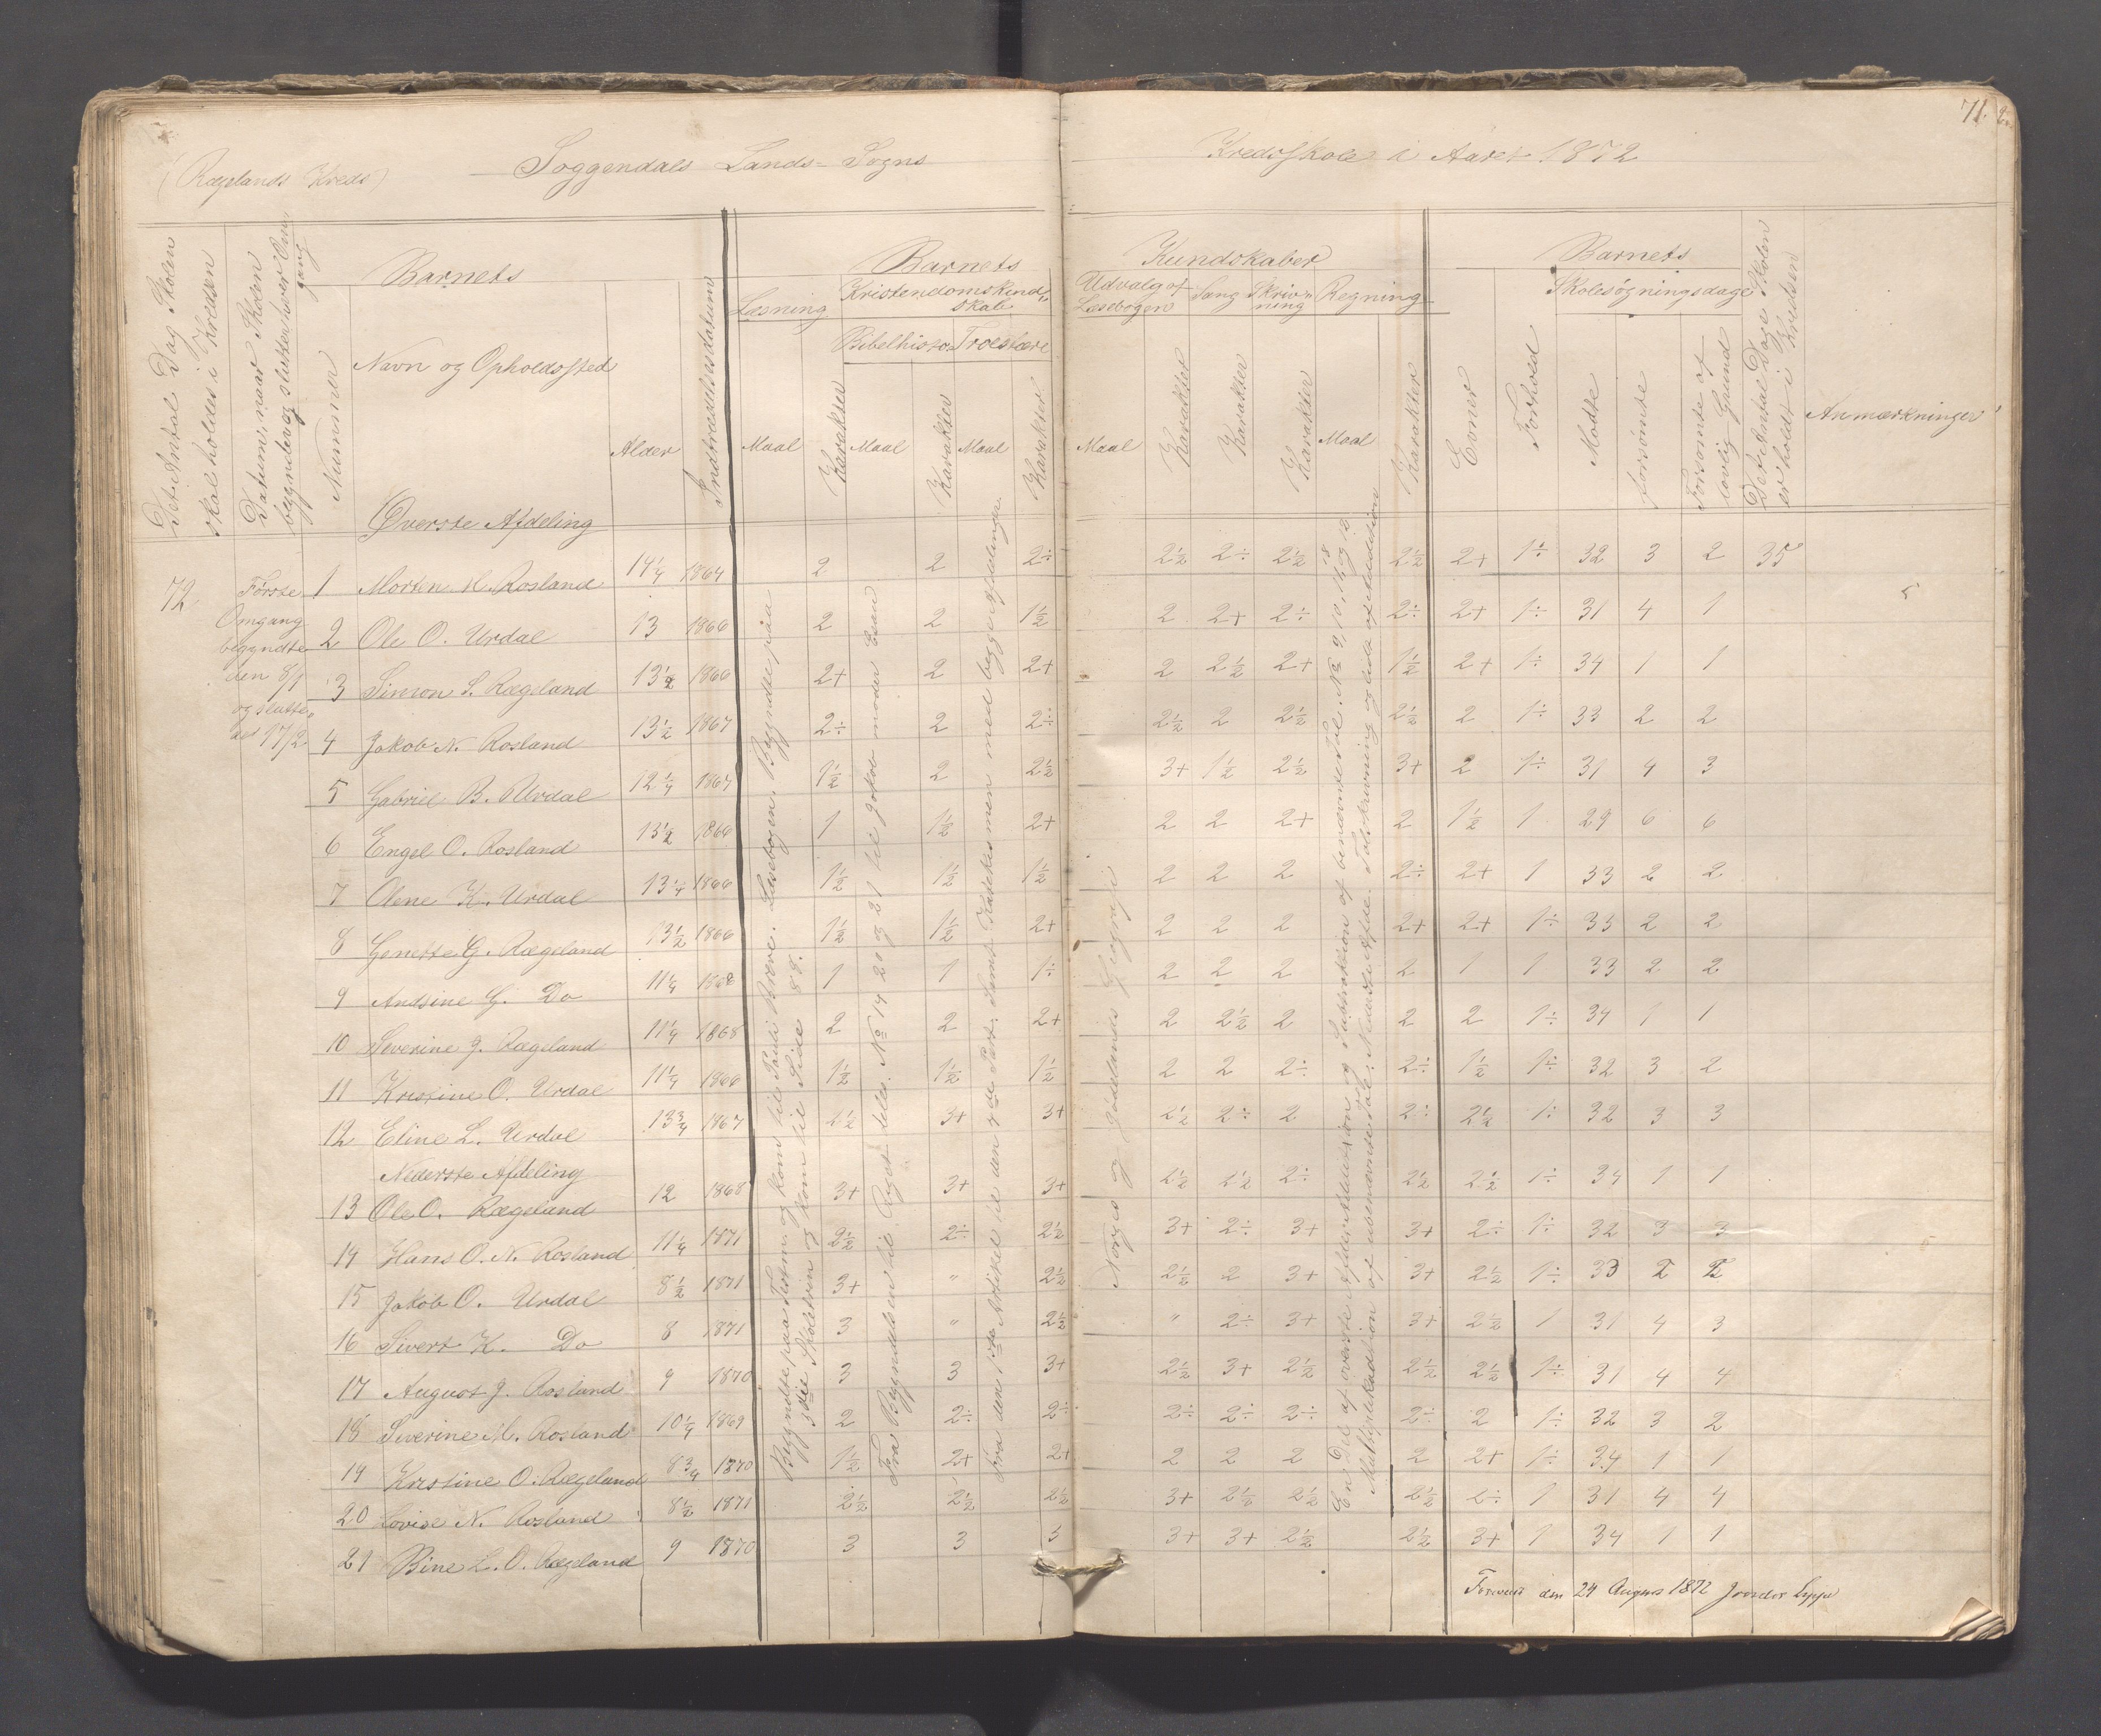 71.
(Rægelands Kreds)
Soggendals Lands-Sogns
Kredsskole i Aaret 1872
Det Antal Dag Skolen
skal holdes i Kredsen
Datum, naar Skolen
begynder og slutter hver Om
gang
Barnets
Nummer
Navn og Opholdssted
Alder
Indtrædelsesdatum
Barnets
Kundskaber
Læsning
Kristendomskund
skab
Bibelhisto. Troeslære
Udvalg af
Læsebogen
Sang
Skriv
ning
Regning
Maal
Karakter
Maal
Karakter
Maal
Karakter
Maal
Karakter
Karakter
Karakter
Maal
Karakter
Barnets
Evner
Forhold
Skolesøgningsdage
Mødte
forsømte
Forsømte af
lovlig Grund
Det Antal Dage Skolen
er holdt i Kredsen
Anmærkninger
Øverste Afdeling
72
Første
Omgang
begyndte
den 8/1
og slutte
det 17/2
1 Morten M. Rosland 14¼ 1864 2 2 2÷ 2½ 2÷ 2½ 2½ 2+ 1÷ 32 3 2 35
2 Ole O. Urdal 13 1866 2 2 1½ 2 2+ 2÷ 2÷ 2+ 1÷ 31 4 1
3 Simon S. Rægeland 13½ 1866 2+ 2 2+ 2 2½ 2+ 1½ 2+ 1÷ 34 1 1
4 Jakob N. Rosland 13½ 1867 2÷ 2 2÷ 2½ 2 2½ 2½ 2 1÷ 33 2 2
5 Gabriel B. Urdal 12¼ 1867 1½ 2 2½ 3+ 1½ 2½ 3+ 2 1÷ 31 4 3
6 Engel O. Rosland 13½ 1866 1 1½ 2+ 2 2 2+ 2 1½ 1 29 6 6
7 Olene K. Urdal 13¼ 1866 1½ 1½ 1½ 2 2 2 2÷ 2+ 1 33 2 2
8 Genette G. Rægeland 13½ 1866 1½ 1½ 2+ 2 2 2 2+ 2+ 1÷ 33 2 2
9 Andsine G. Do 11¼ 1868 1 1 1÷ 2 2 2 2 1 1 33 2 2
10 Severine J. Rægeland 11¼ 1868 2 2 2+ 2 2½ 2 2 2 1÷ 34 1 1
11 Kristine O. Urdal 11¼ 1866 1½ 1½ 1½ 2 2 2÷ 2÷ 1½ 1÷ 32 3 2
12 Eline L. Urdal 13¾ 1867 2½ 3+ 3+ 2½ 2÷ 2 2÷ 2½ 1÷ 32 3 3
Nederste Afdeling
13 Ole O. Rægeland 12 1868 3+ 3+ 3+ 2½ 2½ 2÷ 2½ 2½ 1÷ 34 1 1
14 Hans O. N. Rosland 11¼ 1871 2½ 2÷ 2½ 3+ 2÷ 3+ 3+ 2÷ 1÷ 32 3 3
15 Jakob O. Urdal 8½ 1871 3+ " 2½ 2½ 2 3+ 3+ 2½ 1÷ 33 2 2
16 Sivert K. Do 8 1871 3 " 2½ " 2÷ 3+ 3+ 2½ 1 31 4 3
17 August J. Rosland 9 1870 3 3 3+ 2½ 3+ 2½ 2½ 2½ 1÷ 31 4 4
18 Siverine M. Rosland 10¼ 1869 2 2÷ 2÷ 2÷ 2÷ 2÷ 2÷ 2 1÷ 32 3 2
19 Kristine O. Rægeland 8¾ 1870 1½ 2+ 2+ 2 2 2 2 2+ 1÷ 34 1 1
20 Lovise N. Rosland 8½ 1871 2½ 2½ 2½ 3+ 2½ 2½ 2½ 2÷ 1 31 4 4
21 Bine L. O. Rægeland 9 1870 3 3 3 3+ 3+ 2½ 2½ 3+ 1 34 1 1
Begyndte paa Testam. og kom til Pauli Breve. Læsebogen. Begyndte paa
3die Skoletrin og kom til Side 88.
Fra Begyndelsen til Riget deles. No 19 20 og 21 til Jakob møder Esau
Fra den 1ste Artikel til den 4de Part. Katekismen med begge Afdelinger.
Norges og Jødelands Geografi
En Del af øverste Afdeling Addition og Subtraktion af benævnte Tal. No 9, 10, 14 og 18
Multiplikadtion af ubenævnte Tal. Nederste Afde. Talskrivning og lidt af Addition
den 24 August 1872